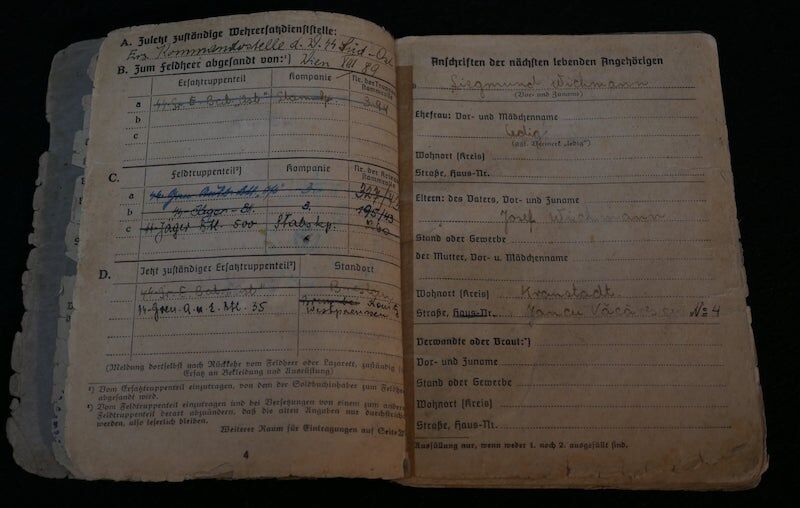 A. Zuletzt zuständige Wehrersatzdienststelle:
Erg. Kommandostelle d. W. SS Süd-Ost
B. Zum Feldheer abgesandt von:¹) Wien VIII
Ersatztruppenteil Kompanie Nr. der Truppenstammrolle
a "Ost" Stammkp.
b
c
C.
Feldtruppenteil²) Kompanie Nr. der Kriegsstammrolle
a 357/42
b SS-Jäger-Btl. 3. 195/43
c SS-Jäger Btl. 500 Stabskp.
D. Jetzt zuständiger Ersatztruppenteil²) Standort
"Ost" Breslau
SS-Gren. A.u.E. Btl. 35 Konitz
Westpreussen
(Meldung dortselbst nach Rückkehr vom Feldheer oder Lazarett, zuständig für
Ersatz an Bekleidung und Ausrüstung)
¹) Vom Ersatztruppenteil einzutragen, von dem der Soldbuchinhaber zum Feldheer
abgesandt wird.
²) Vom Feldtruppenteil einzutragen und bei Versetzungen von einem zum anderen
Feldtruppenteil derart abzuändern, daß die alten Angaben nur durchstrichen
werden, also leserlich bleiben.
Weiterer Raum für Eintragungen auf Seite
4
Anschriften der nächsten lebenden Angehörigen
Siegmund Wichmann
(Vor- und Zuname)
Ehefrau: Vor- und Mädchenname
ledig
(ggf. Vermerk „ledig")
Wohnort (Kreis)
Straße, Haus-Nr.
Eltern: des Vaters, Vor- und Zuname
Josef Wichmann
Stand oder Gewerbe
der Mutter, Vor- u. Mädchenname
Wohnort (Kreis) Kronstadt
Straße, Haus-Nr. Jancu Văcărescu No 4
Verwandte oder Braut:*)
Vor- und Zuname
Stand oder Gewerbe
Wohnort (Kreis)
Straße, Haus-Nr.
*) Ausfüllung nur, wenn weder 1. noch 2. ausgefüllt sind.